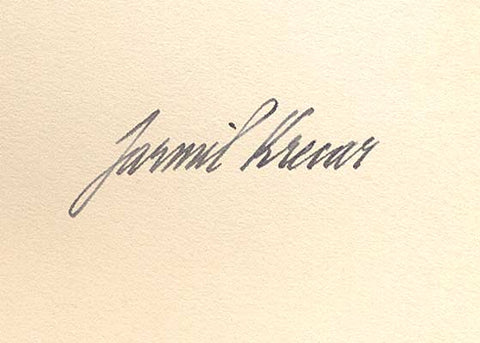 Jarmil Krecar